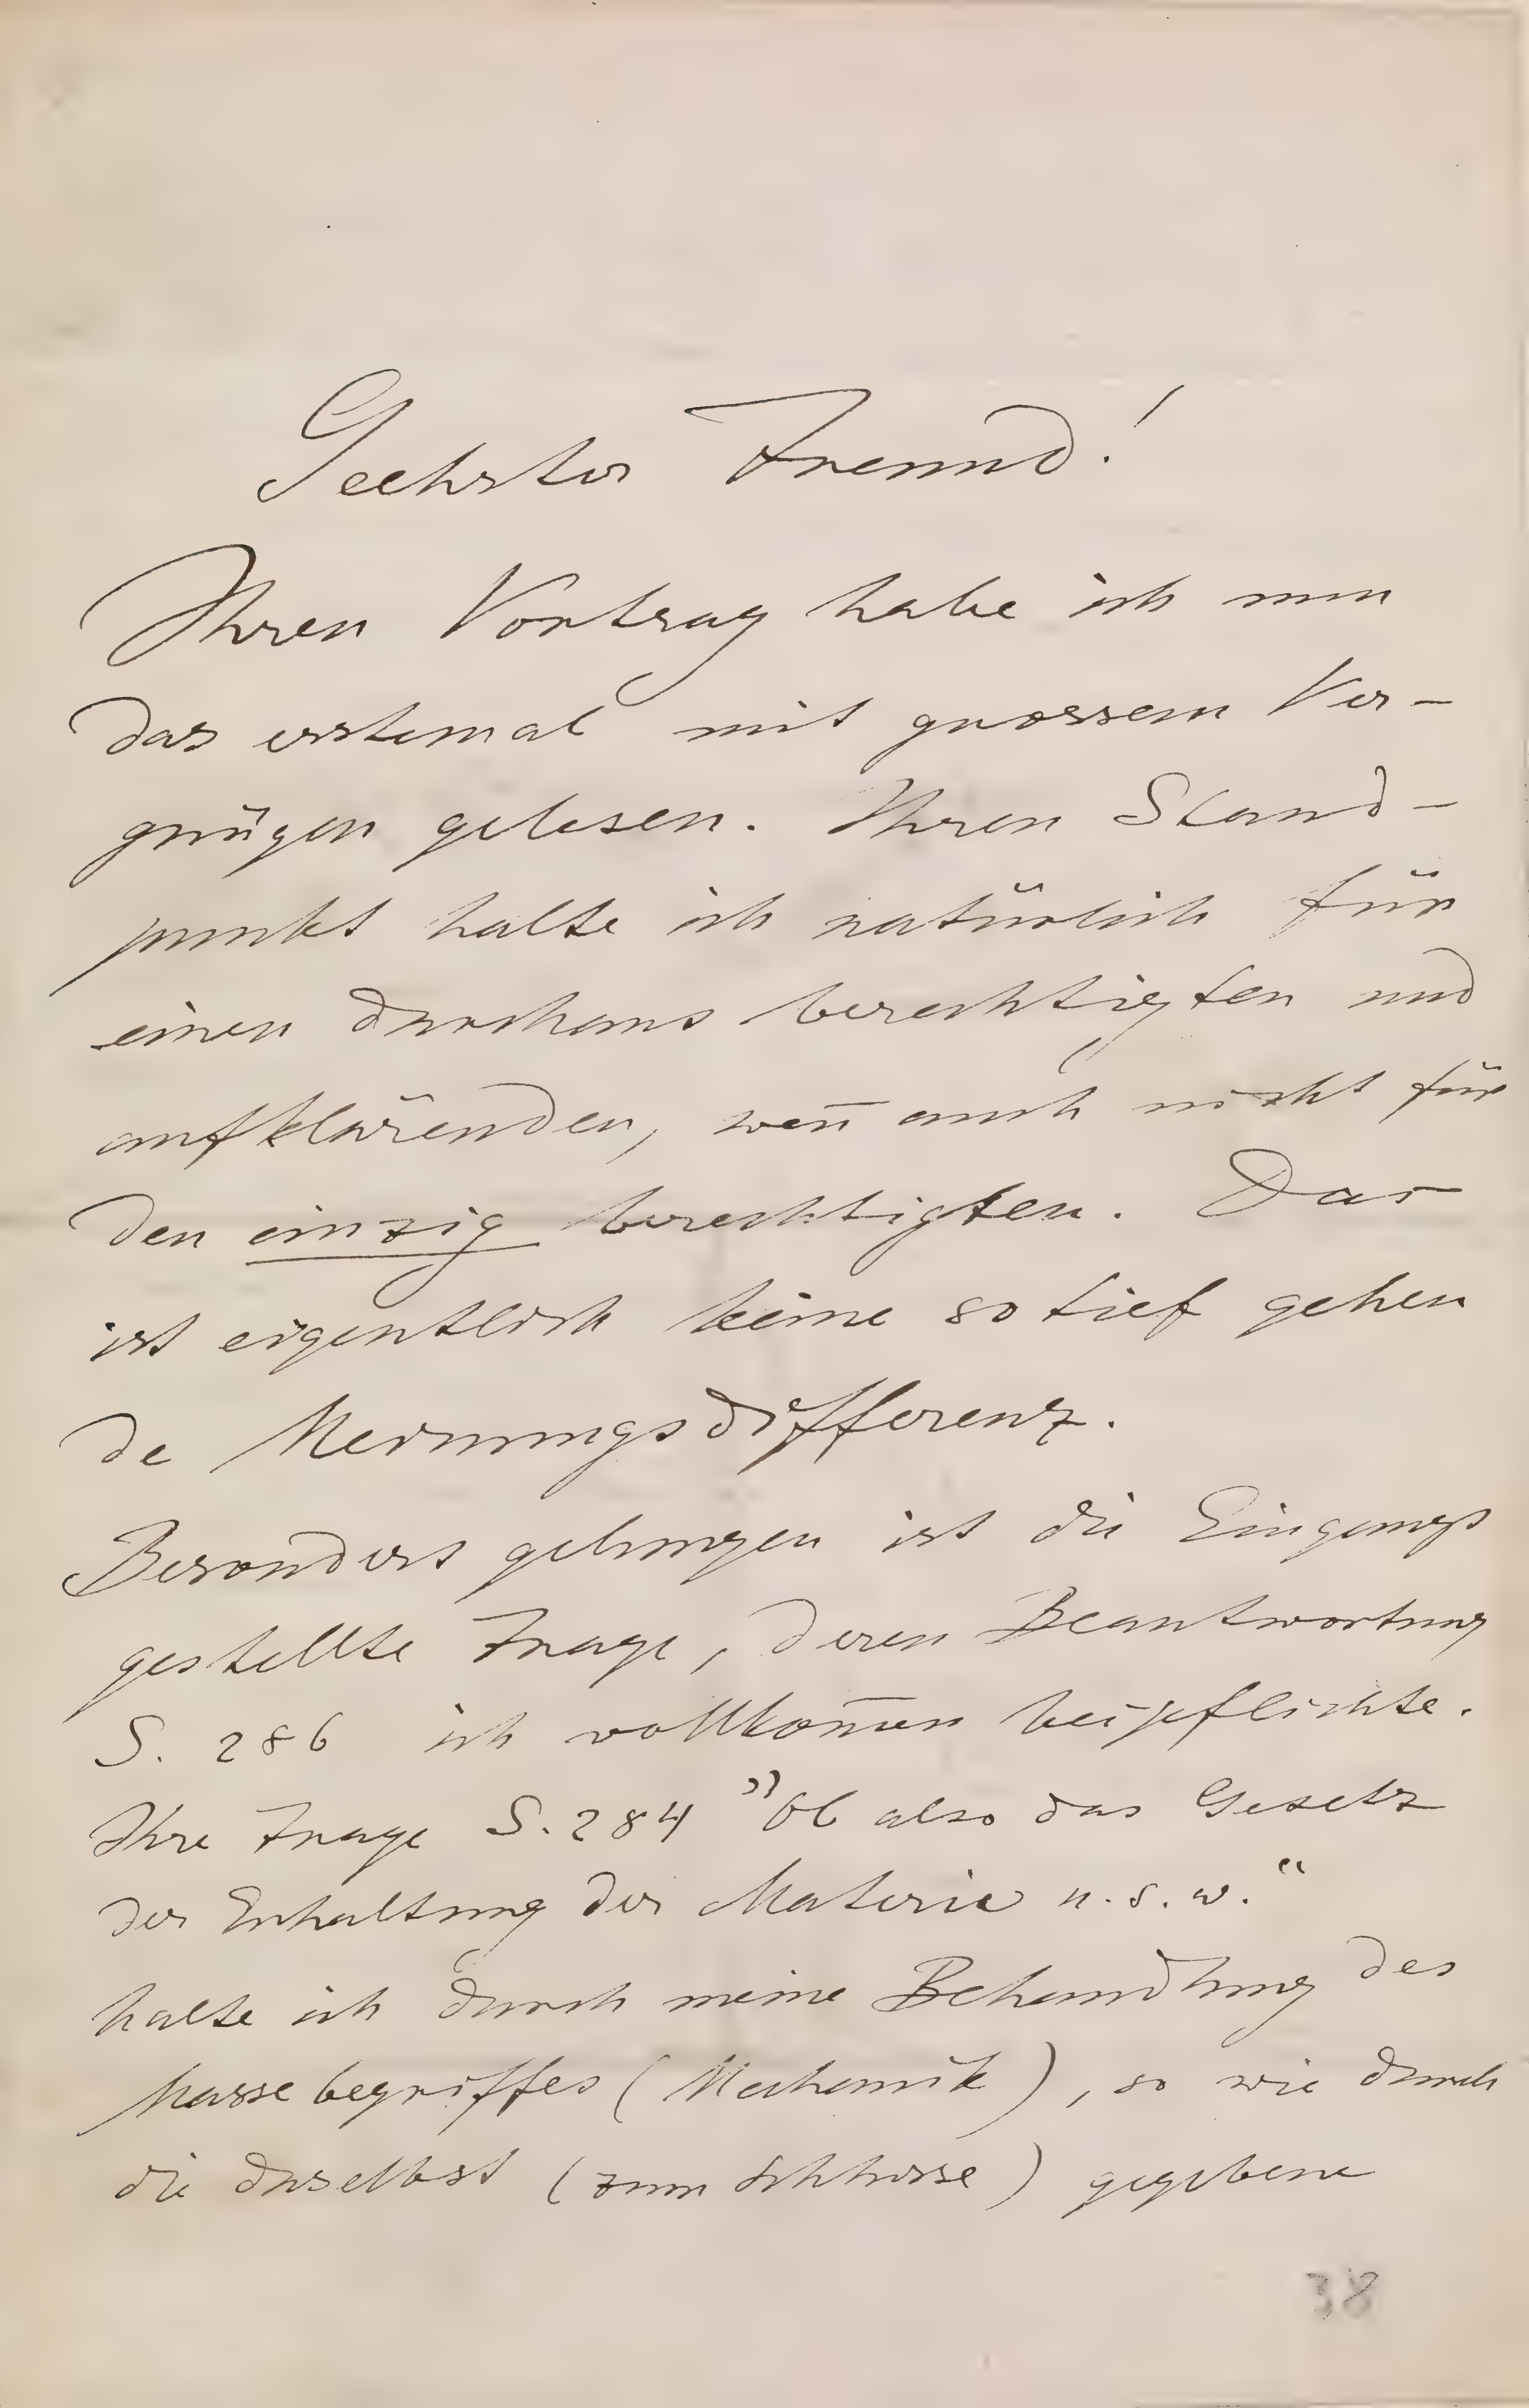 Geehrter Freund!
Ihren Vortrag habe ich nun
das erstemal mit grossem Ver-
gnügen gelesen. Ihren Stand-
punkt halte ich natürlich für
einen durchaus berechtigten und
aufklärenden, wen̄ auch nicht für
den einzig berechtigten. Das
ist eigentlich keine so tief gehen
de Meinungsdifferenz.
Besonders gelungen ist die Eingangs
gestellte Frage, deren Beantwortung
S. 286 ich vollkom̄en beipflichte.
Ihre Frage S. 284 "Ob also das Gesetz
der Erhaltung der Materie u. s. w."
halte ich durch meine Behandlung des
Massebegriffes (Mechanik), so wie durch
die daselbst (zum Schlusse) gegebene
38